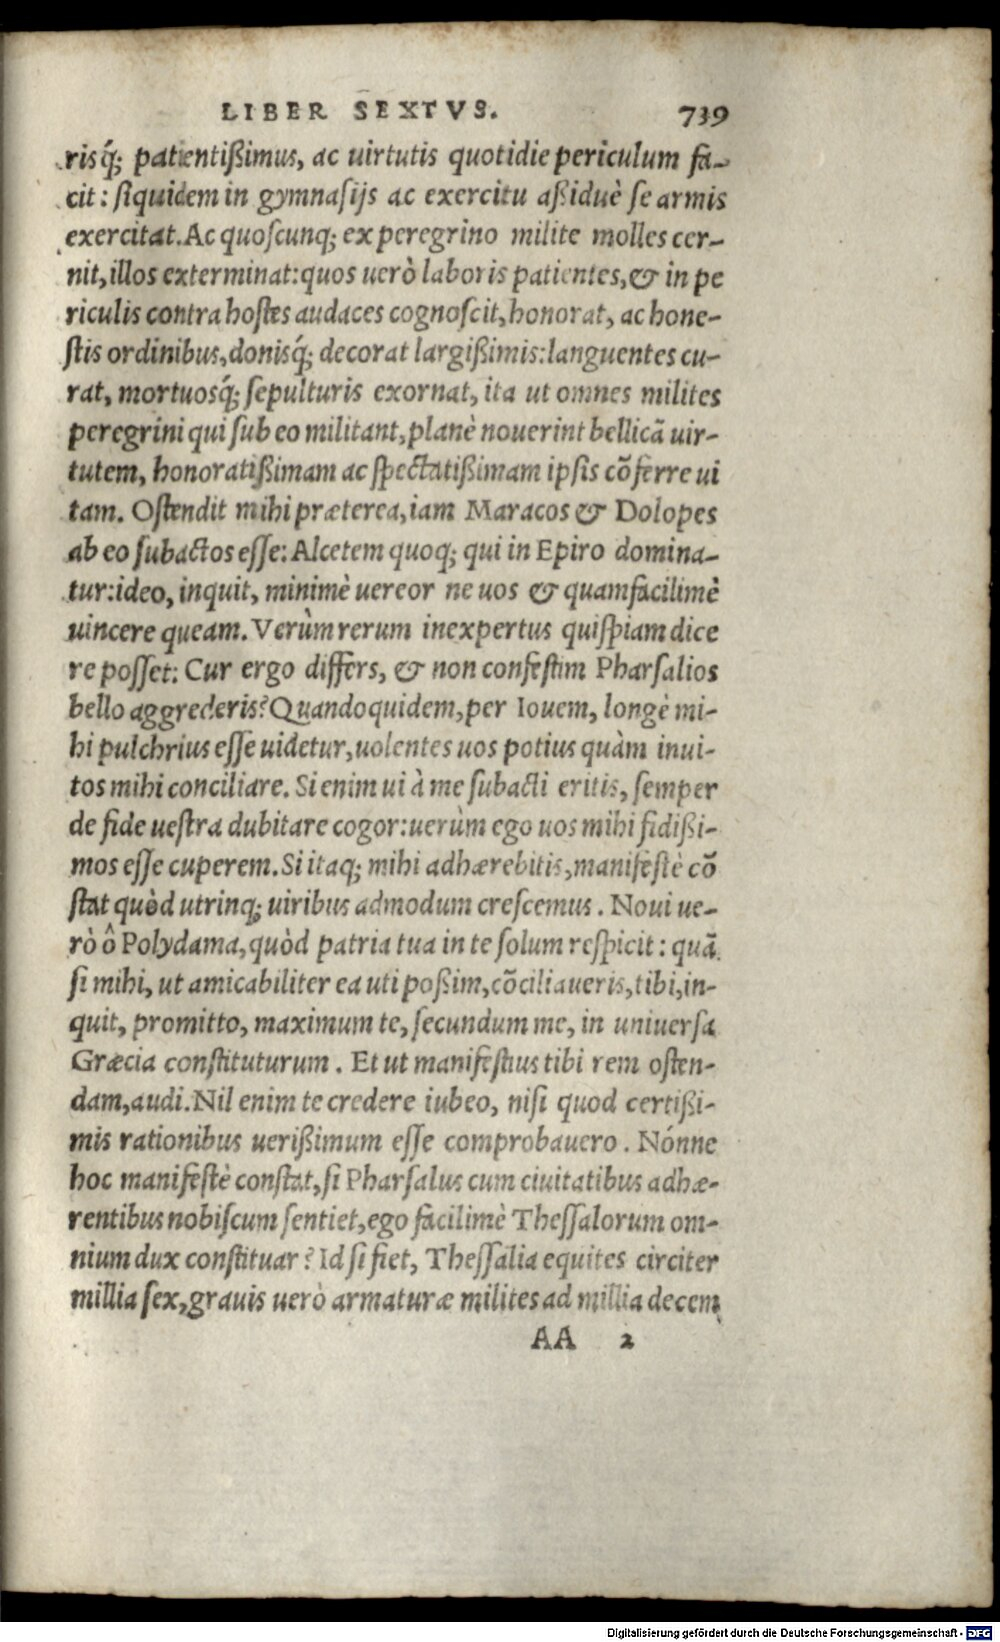 LIBER SEXTVS. 739
risq́; patientißimus, ac uirtutis quotidie periculum fa-
cit: siquidem in gymnasijs ac exercitu aßiduè se armis
exercitat. Ac quoscunq; ex peregrino milite molles cer-
nit, illos exterminat: quos uerò laboris patientes, & in pe
riculis contra hostes audaces cognoscit, honorat, ac hone-
stis ordinibus, donisq́; decorat largißimis: languentes cu-
rat, mortuosq́; sepulturis exornat, ita ut omnes milites
peregrini qui sub eo militant, planè nouerint bellicã uir-
tutem, honoratißimam ac spectatißimam ipsis cõferre ui
tam. Ostendit mihi præterea, iam Maracos & Dolopes
ab eo subactos esse: Alcetem quoq; qui in Epiro domina-
tur: ideo, inquit, minimè uereor ne uos & quamfacilimè
uincere queam. Verùm rerum inexpertus quispiam dice
re posset: Cur ergo differs, & non confestim Pharsalios
bello aggrederis? Quandoquidem, per Iouem, longè mi-
hi pulchrius esse uidetur, uolentes uos potius quàm inui-
tos mihi conciliare. Si enim ui à me subacti eritis, semper
de fide uestra dubitare cogor: uerùm ego uos mihi fidißi-
mos esse cuperem. Si itaq; mihi adhærebitis, manifestè cõ
stat quòd utrinq; uiribus admodum crescemus. Noui ue-
rò ô Polydama, quòd patria tua in te solum respicit: quã
si mihi, ut amicabiliter ea uti poßim, cõciliaueris, tibi, in-
quit, promitto, maximum te, secundum me, in uniuersa
Græcia constituturum. Et ut manifestius tibi rem osten-
dam, audi. Nil enim te credere iubeo, nisi quod certißi-
mis rationibus uerißimum esse comprobauero. Nónne
hoc manifestè constat, si Pharsalus cum ciuitatibus adhæ-
rentibus nobiscum sentiet, ego facilimè Thessalorum om-
nium dux constituar? Id si fiet, Thessalia equites circiter
millia sex, grauis uerò armaturæ milites ad millia decem
AA 2
Digitalisierung gefördert durch die Deutsche Forschungsgemeinschaft - DFG